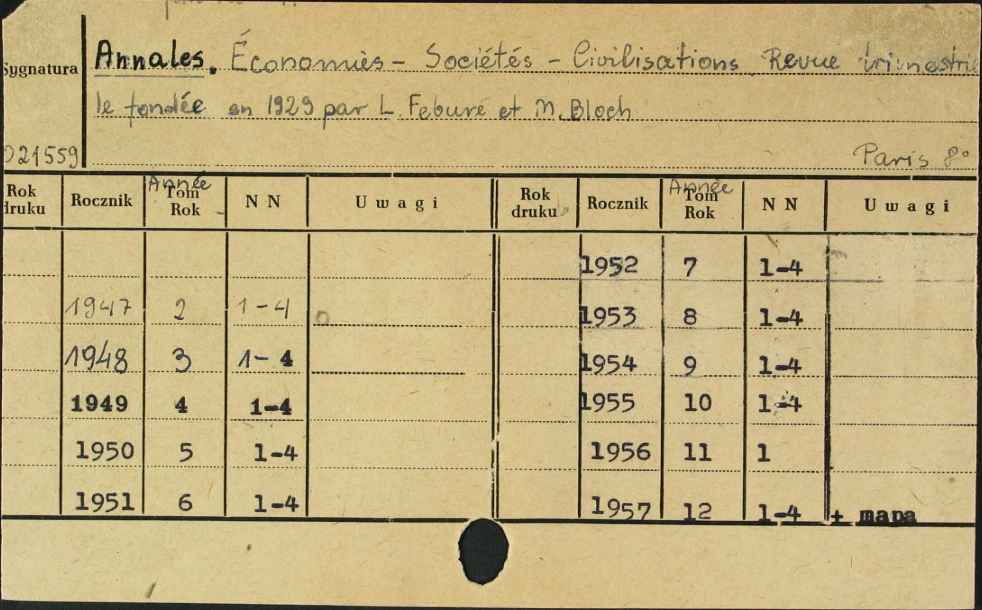 Sygnatura Annales. Économies – Sociétés – Civilisations Revue trimestrie
le fondée en 1929 par L. Febvre et M. Bloch
021559 Paris 8°
Rok druku Rocznik Année Tom Rok N N Uwagi Rok druku Rocznik Année Tom Rok N N Uwagi
1952 7 1-4
1947 2 1-4 1953 8 1-4
1948 3 1-4 1954 9 1-4
1949 4 1-4 1955 10 1-4
1950 5 1-4 1956 11 1
1951 6 1-4 1957 12 1-4 + mapa